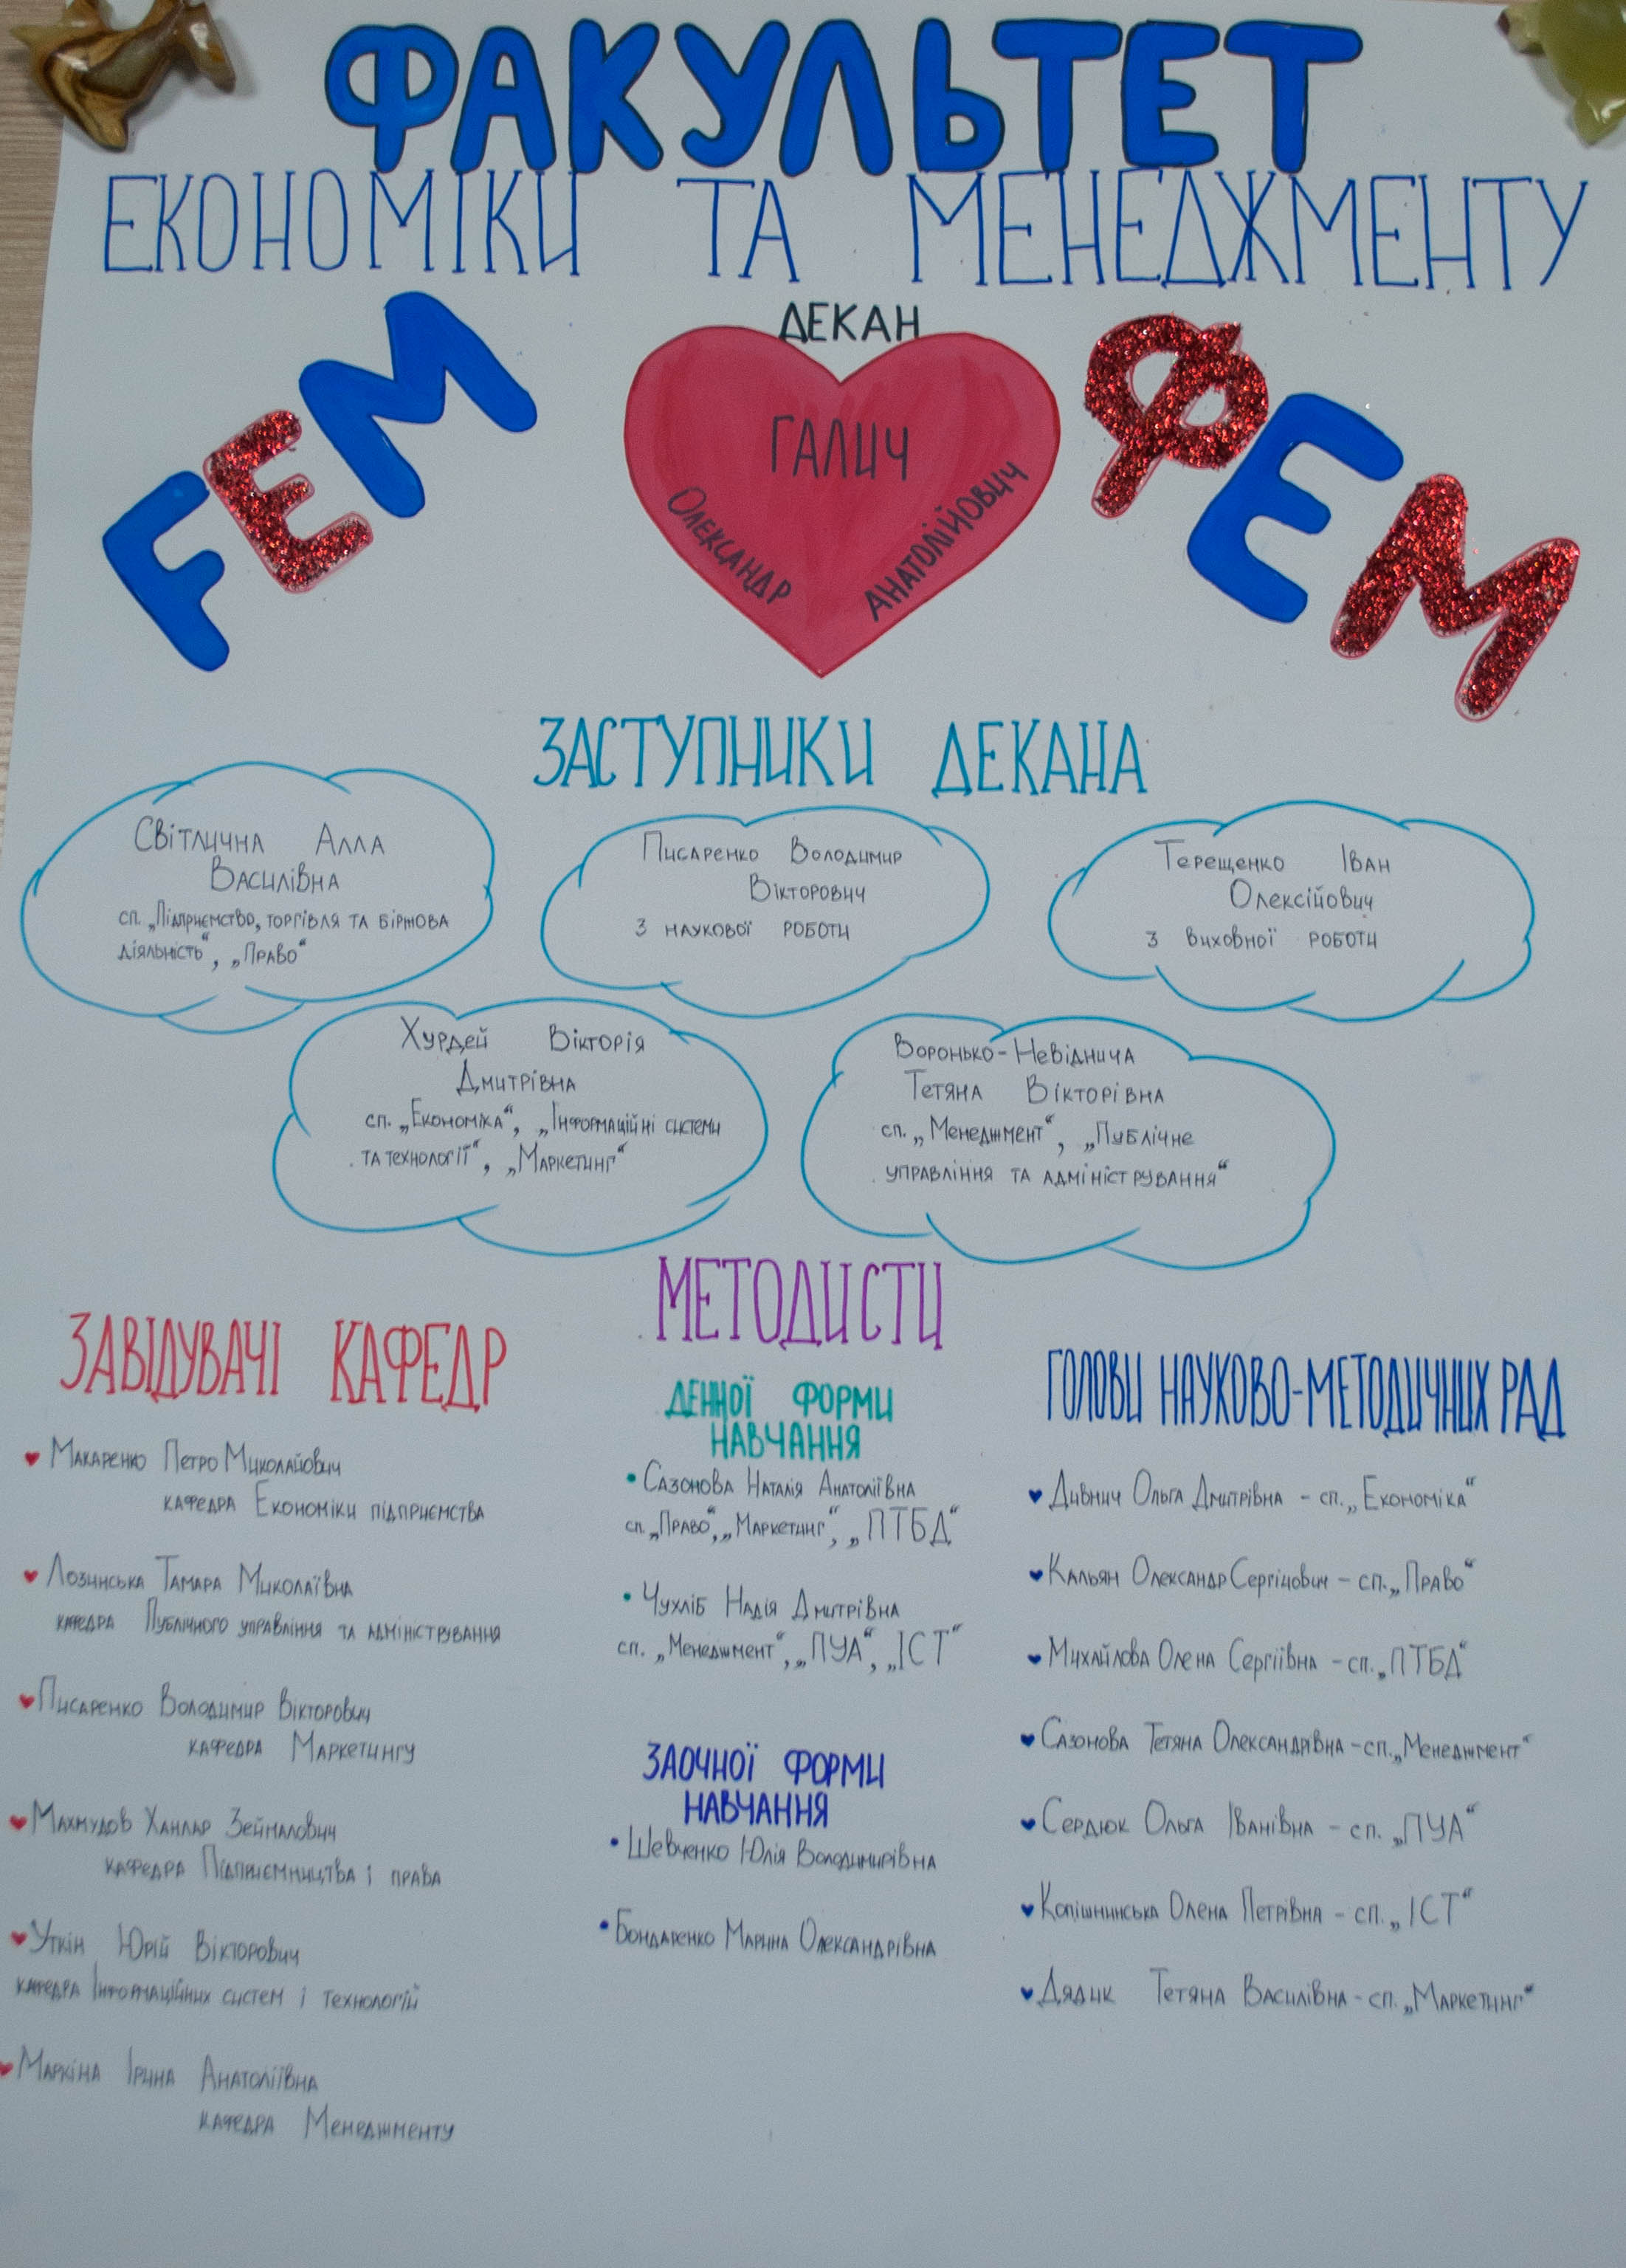 ФАКУЛЬТЕТ
ЕКОНОМІКИ ТА МЕНЕДЖМЕНТУ
FEM
ДЕКАН
ГАЛИЧ
ОЛЕКСАНДР
АНАТОЛІЙОВИЧ
ФЕМ
ЗАСТУПНИКИ ДЕКАНА
Світлична Алла
Василівна
сп. „Підприємство, торгівля та біржова
діяльність“, „Право“
Писаренко Володимир
Вікторович
з наукової роботи
Терещенко Іван
Олексійович
з виховної роботи
Хурдей Вікторія
Дмитрівна
сп. „Економіка“, „Інформаційні системи
та технології“, „Маркетинг“
Воронько-Невіднича
Тетяна Вікторівна
сп. „Менеджмент“, „Публічне
управління та адміністрування“
ЗАВІДУВАЧІ КАФЕДР
Макаренко Петро Миколайович
кафедра Економіки підприємства
Лозинська Тамара Миколаївна
кафедра Публічного управління та адміністрування
Писаренко Володимир Вікторович
кафедра Маркетингу
Махмудов Ханлар Зейналович
кафедра Підприємництва і права
Уткін Юрій Вікторович
кафедра Інформаційних систем і технологій
Маркіна Ірина Анатоліївна
кафедра Менеджменту
МЕТОДИСТИ
ДЕННОЇ ФОРМИ
НАВЧАННЯ
• Сазонова Наталія Анатоліївна
сп. „Право“, „Маркетинг“, „ПТБД“
• Чухліб Надія Дмитрівна
сп. „Менеджмент“, „ПУА“, „ІСТ“
ЗАОЧНОЇ ФОРМИ
НАВЧАННЯ
• Шевченко Юлія Володимирівна
• Бондаренко Марина Олександрівна
ГОЛОВИ НАУКОВО-МЕТОДИЧНИХ РАД
Дивнич Ольга Дмитрівна - сп. „Економіка“
Кальян Олександр Сергійович - сп. „Право“
Михайлова Олена Сергіївна - сп. „ПТБД“
Сазонова Тетяна Олександрівна - сп. „Менеджмент“
Сердюк Ольга Іванівна - сп. „ПУА“
Копішинська Олена Петрівна - сп. „ІСТ“
Дядик Тетяна Василівна - сп. „Маркетинг“